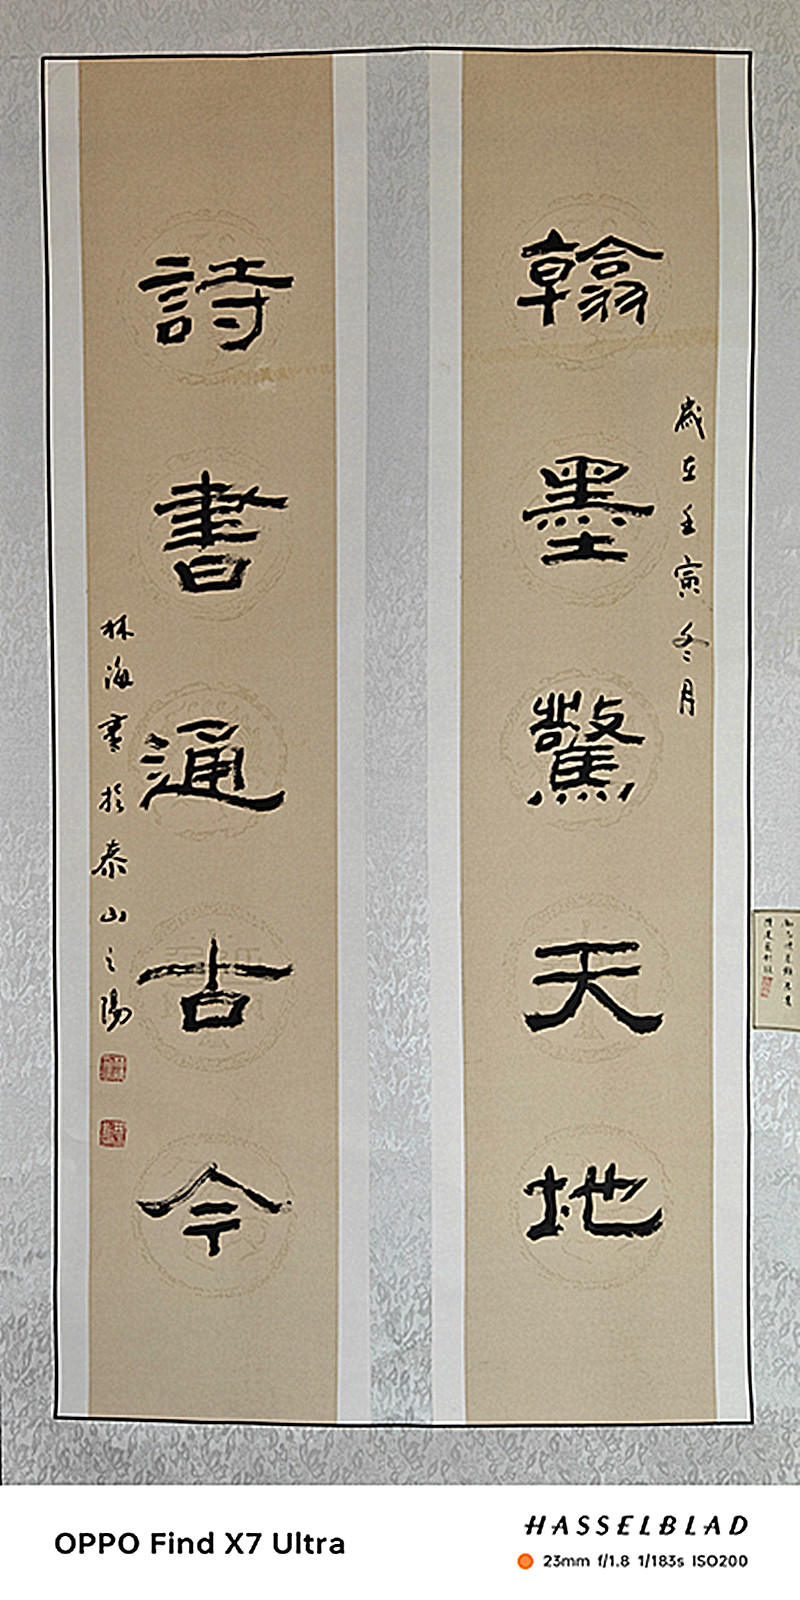 翰墨驚天地
歲在壬寅冬月
詩書通古今
林海書於泰山之陽
OPPO Find X7 Ultra
HASSELBLAD
23mm f/1.8 1/183s ISO200